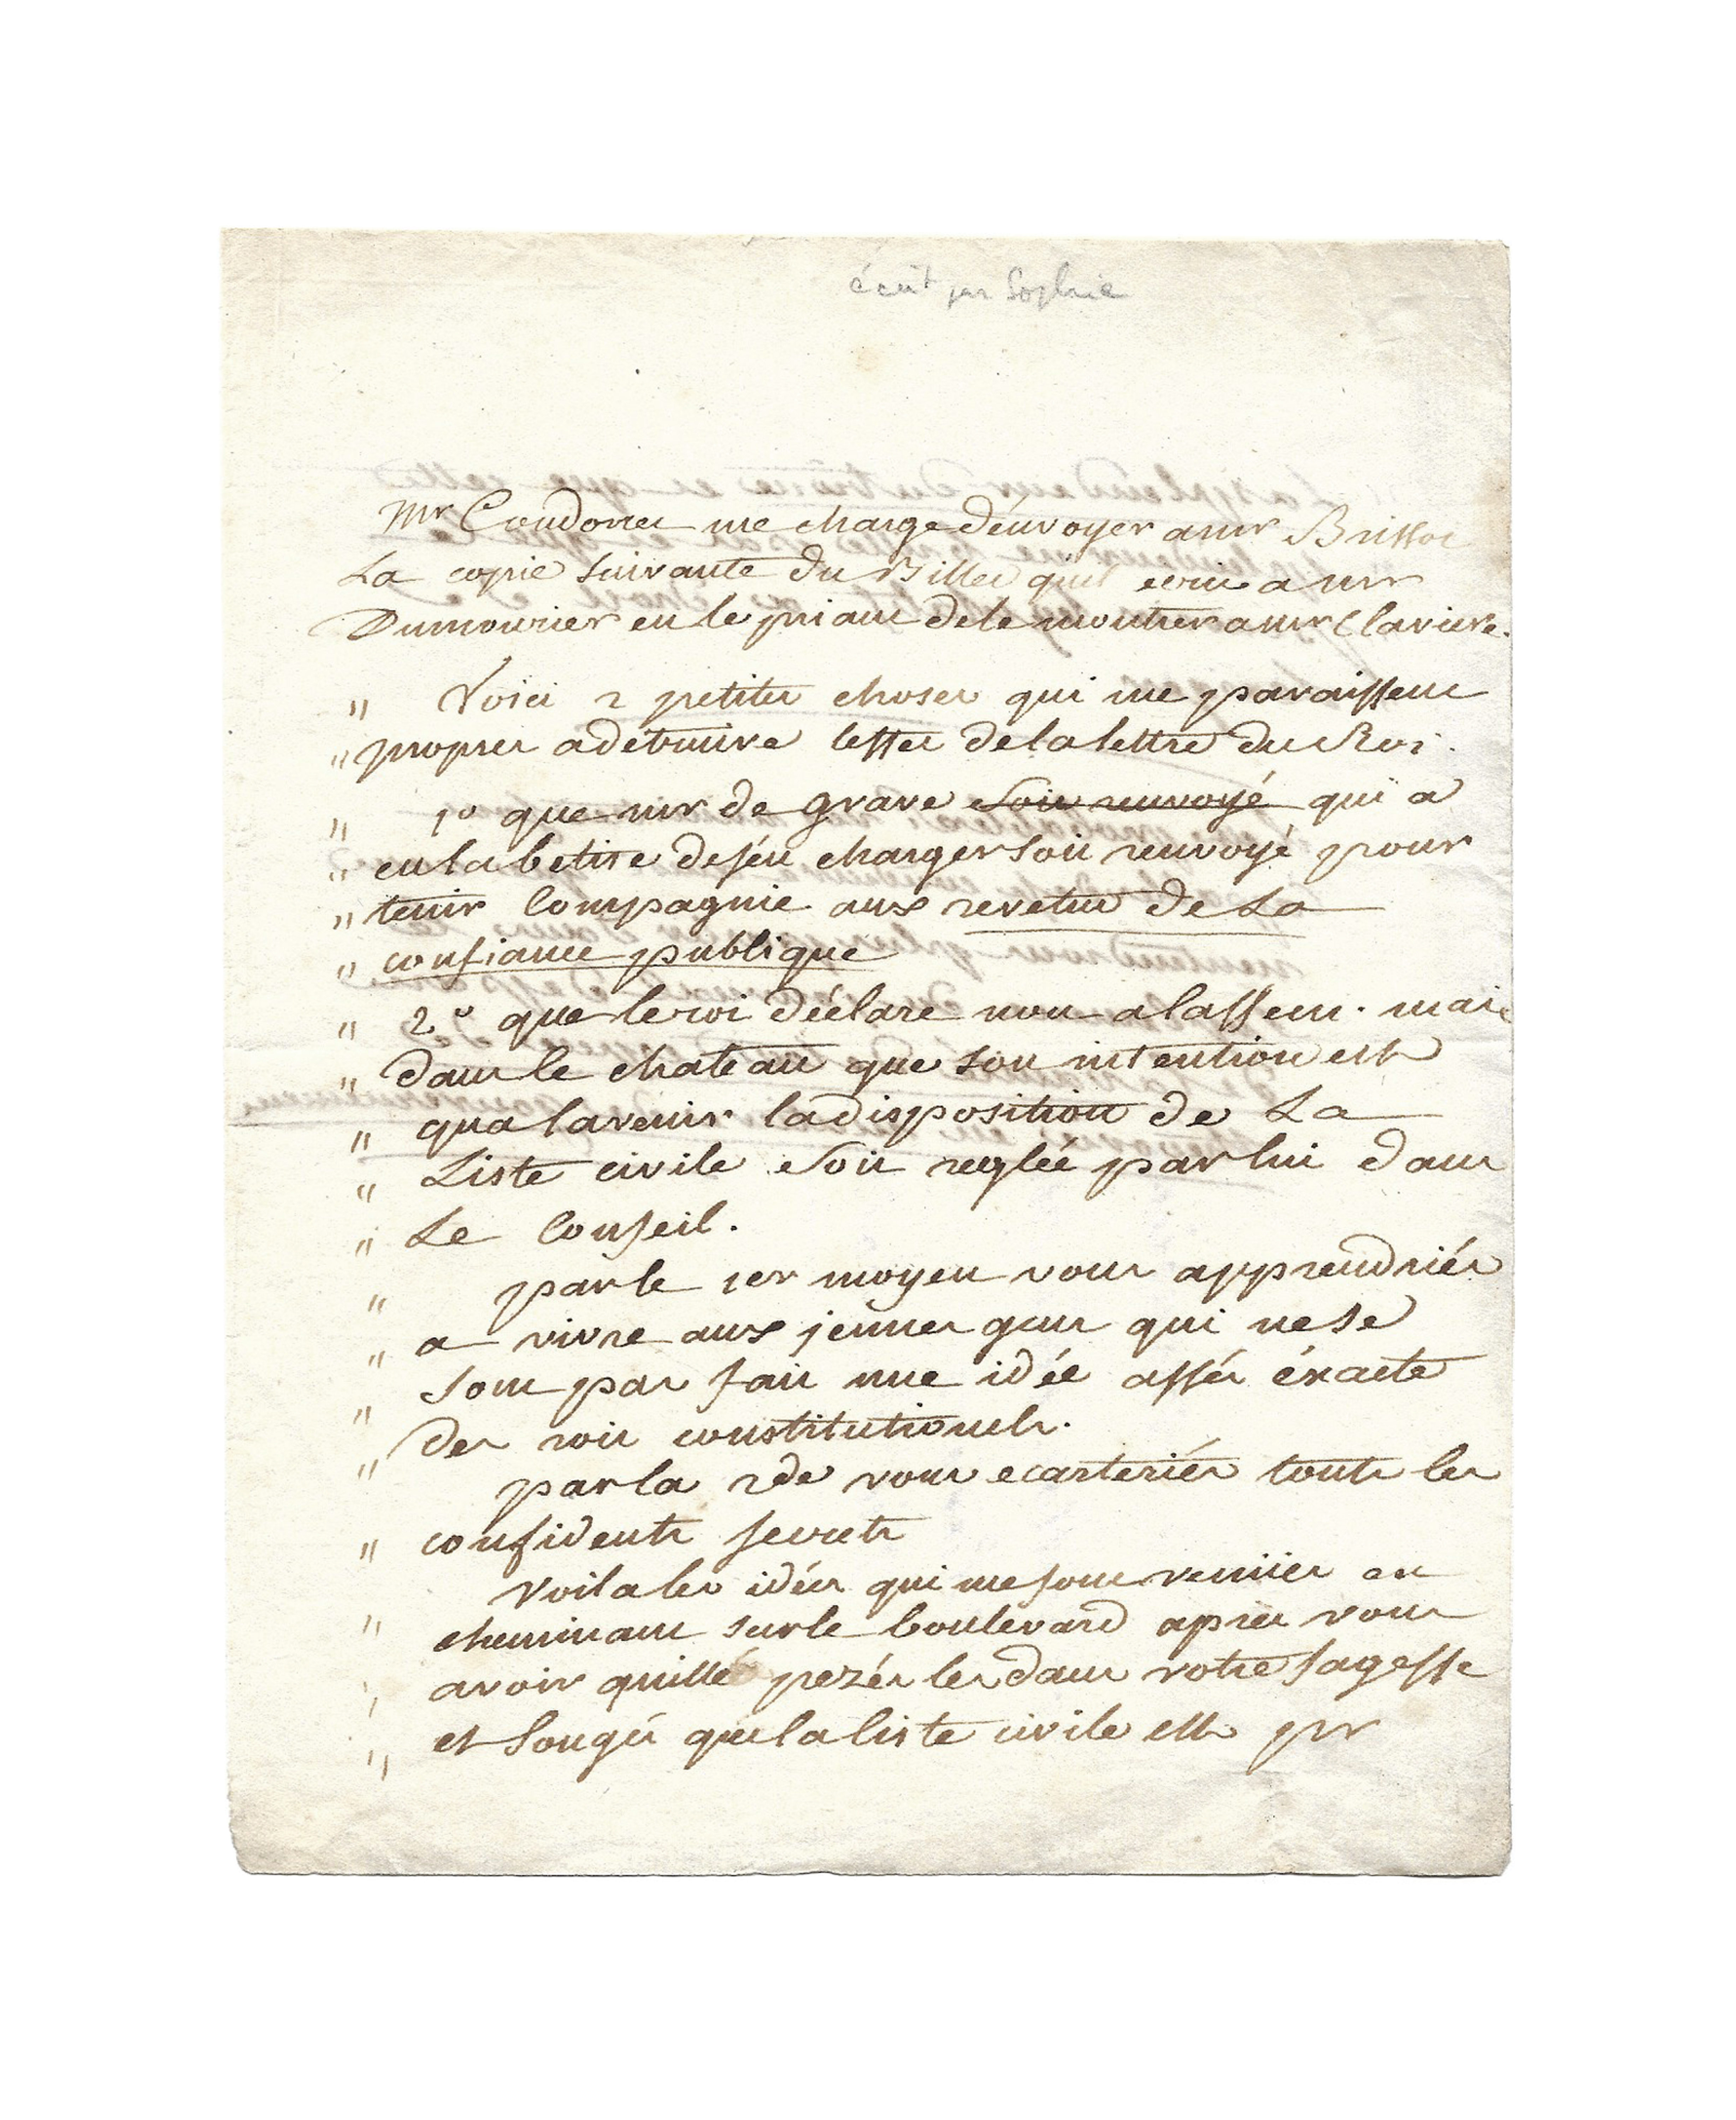 écrit par Sophie
Mr Condorcet me charge d'énvoyer a mr Brissot
La copie suivante du Billet quil écrit a mr
Dumourier en le priant de le montrer a mr Claviere.
" Voici 2 petites choses qui me paraissent
" propres a détruire leffet de la lettre du Roi.
" 1º que mr de grave soit renvoyé qui a
" eu la betise de s'én charger soit renvoyé pour
" tenir Compagnie aux revetus de La
" confiance publique
" 2º que le roi déclare non a lassem. mais
" dans le chateau que son intention est
" qua lavenir la disposition de La
" Liste civile soit reglée par lui dans
" Le Conseil.
" par le 1er moyen vous apprendriés
" a vivre aux jeunes gens qui ne se
" sont pas fait une idée assés éxacte
" des rois constitutionels.
par la 2de vous ecarteriés touts les
" confidents secrets
Voila les idées qui me sont venües en
" cheminant sur le boulevard apres vous
" avoir quitté pezés les dans votre sagesse
" et songés que la liste civile est pr